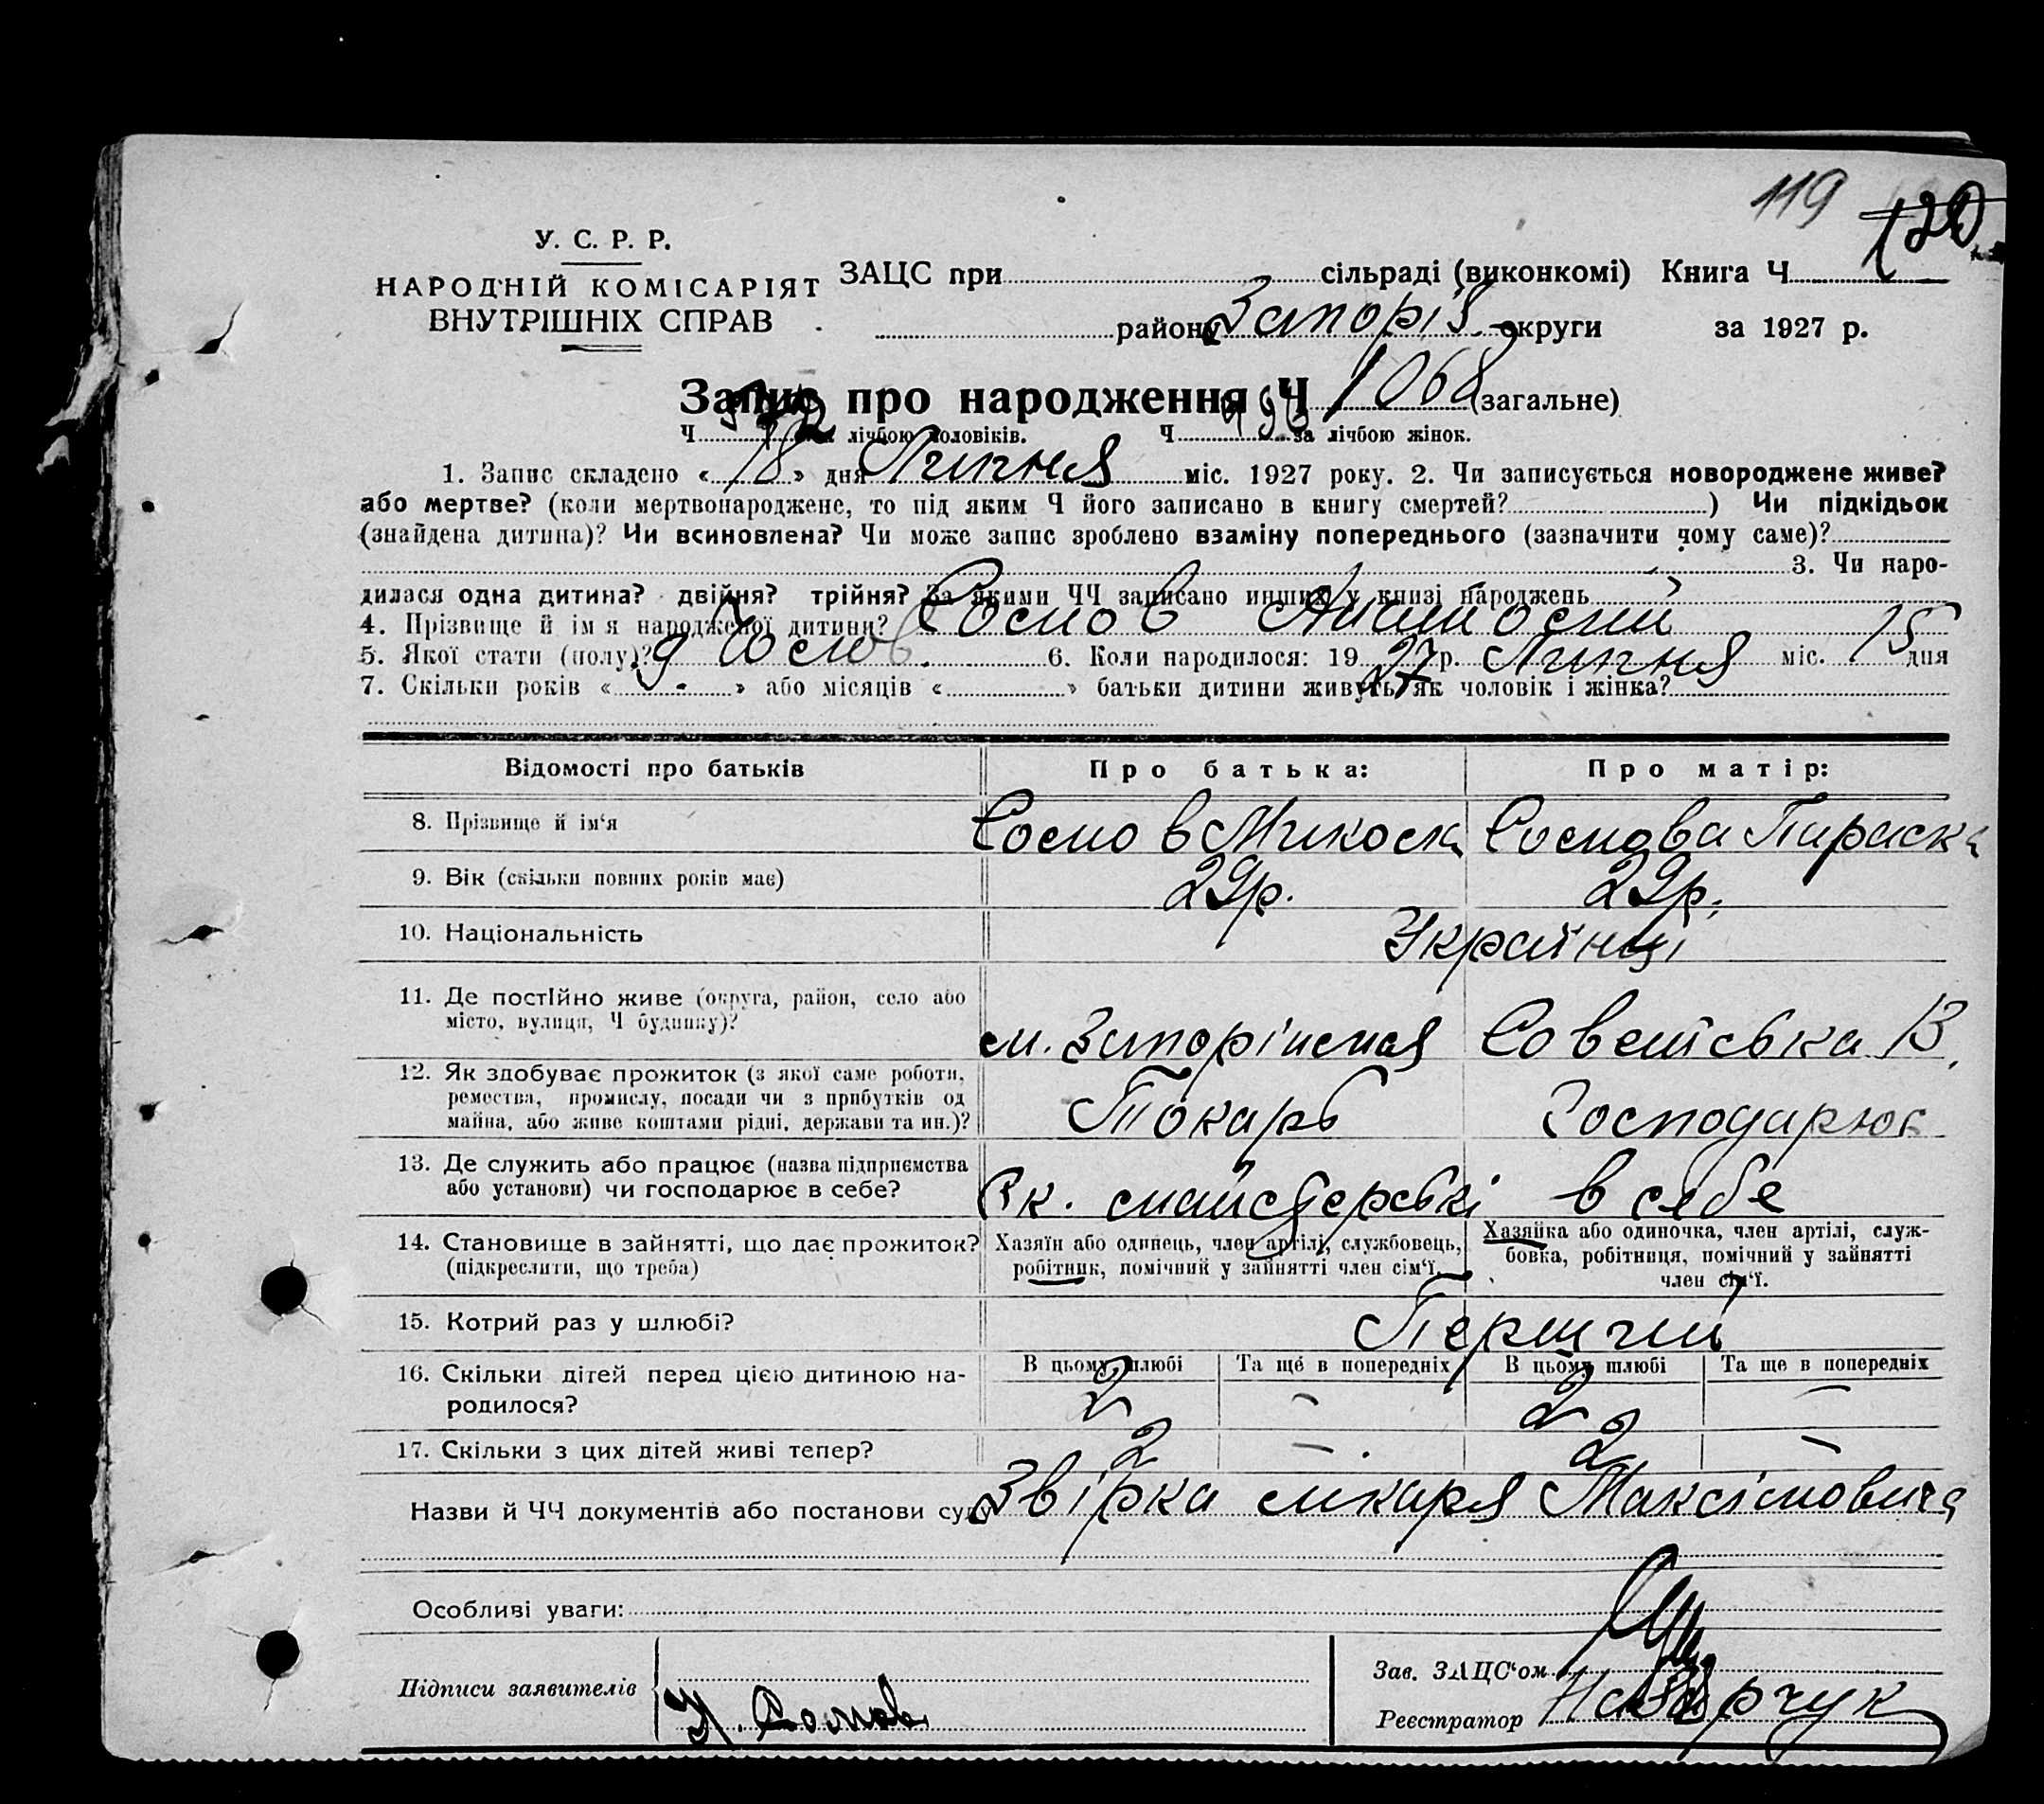 119 120
У. С. Р. Р.
НАРОДНІЙ КОМІСАРІЯТ
ВНУТРІШНІХ СПРАВ
ЗАЦС при сільраді (виконкомі) Книга Ч
району Запоріз. округи за 1927 р.
Запис про народження Ч 1068 (загальне)
Ч 572 за лічбою чоловіків. Ч 496 за лічбою жінок.
1. Запис складено « 18 » дня Липня міс. 1927 року. 2. Чи записується новороджене живе?
або мертве? (коли мертвонароджене, то під яким Ч його записано в книгу смертей? ) Чи підкідьок
(знайдена дитина)? Чи всиновлена? Чи може запис зроблено взаміну попереднього (зазначити чому саме)?
3. Чи наро-
дилася одна дитина? двійня? трійня? За якими ЧЧ записано инших у книзі народжень
4. Прізвище й ім я народженої дитини? Сомов Анатолий
5. Якої стати (полу)? Чолов. 6. Коли народилося: 19 27 р. Липня міс. 15 дня
7. Скільки років « 9 » або місяців « » батьки дитини живуть як чоловік і жінка?
Відомості про батьків Про батька: Про матір:
8. Прізвище й ім‘я Сомов Микола Сомова Параска
9. Вік (скільки повних років має) 29р. 29р.
10. Національність Українці
11. Де постійно живе (округа, район, село або
місто, вулиця, Ч будинку)? м. Запоріжжя Советська 13
12. Як здобуває прожиток (з якої саме роботи,
ремества, промислу, посади чи з прибутків од
майна, або живе коштами рідні, держави та ин.)? Токарь Господарює
13. Де служить або працює (назва підприємства
або установи) чи господарює в себе? к. майстерські в себе
14. Становище в зайнятті, що дає прожиток?
(підкреслити, що треба)
Хазяїн або одинець, член артілі, службовець,
робітник, помічний у зайнятті член сім‘ї.
Хазяйка або одиночка, член артілі, служ-
бовка, робітниця, помічний у зайнятті
член сім‘ї.
15. Котрий раз у шлюбі? Перший
В цьому шлюбі Та ще в попередніх В цьому шлюбі Та ще в попередніх
16. Скільки дітей перед цією дитиною на-
родилося? 2 – 2 –
17. Скільки з цих дітей живі тепер? 2 – 2 –
Назви й ЧЧ документів або постанови суду Звірка лікаря Максімовича
Особливі уваги:
Підписи заявителів Н. Сомов
Зав. ЗАЦС‘ом
Реєстратор Назарчук